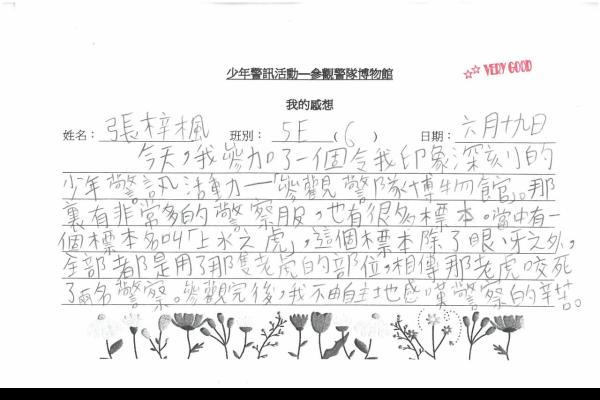 少年警訊活動—參觀警隊博物館
☆☆ VERY GOOD
我的感想
姓名：張梓楓 班別：5E(6) 日期：六月十九日
今天，我參加了一個令我印象深刻的
少年警訊活動—「參觀警隊博物館」。那
裏有非常多的警察服，也有很多標本。當中有一
個標本名叫「上水之虎」，這個標本除了眼、牙之外，
全部都是用了那隻老虎的部位，相傳那老虎咬死
了兩名警察。參觀完後，我不由自主地感嘆警察的辛苦。